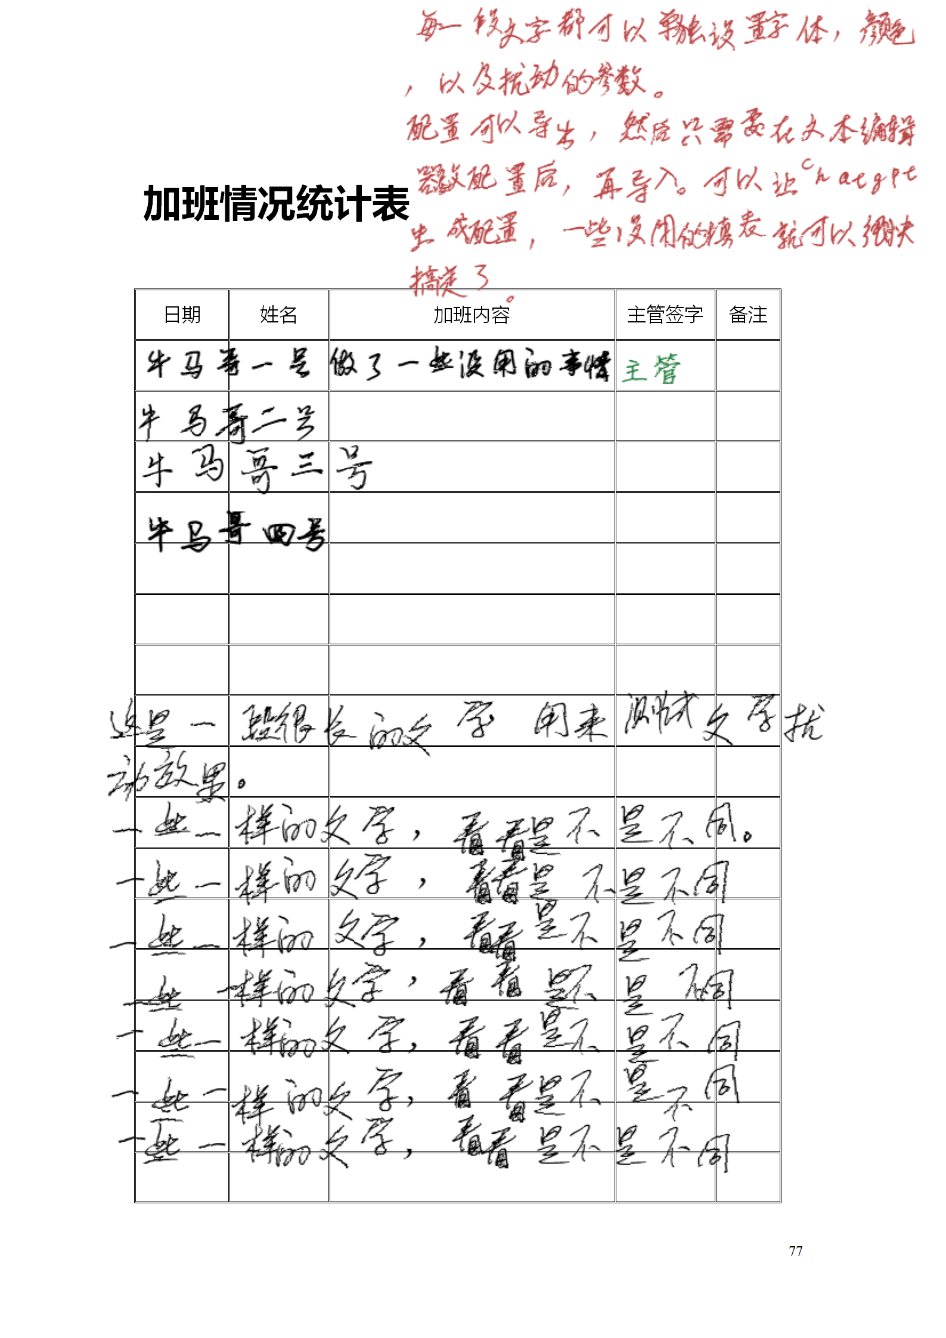 每一段文字都可以单独设置字体，颜色
，以及扰动的参数。
配置可以导出，然后只需要在文本编辑
器改配置后，再导入。可以让Chatgpt
生成配置，一些没用的填表就可以很快
搞定了。
加班情况统计表
日期 姓名 加班内容 主管签字 备注
牛马哥一号 做了一些没用的事情 主管
牛马哥二号
牛马哥三号
牛马哥四号
这是一段很长的文字用来测试文字扰
动效果。
一些一样的文字，看看是不是不同。
一些一样的文字，看看是不是不同
一些一样的文字，看看是不是不同
一些一样的文字，看看是不是不同
一些一样的文字，看看是不是不同
一些一样的文字，看看是不是不同
一些一样的文字，看看是不是不同
77